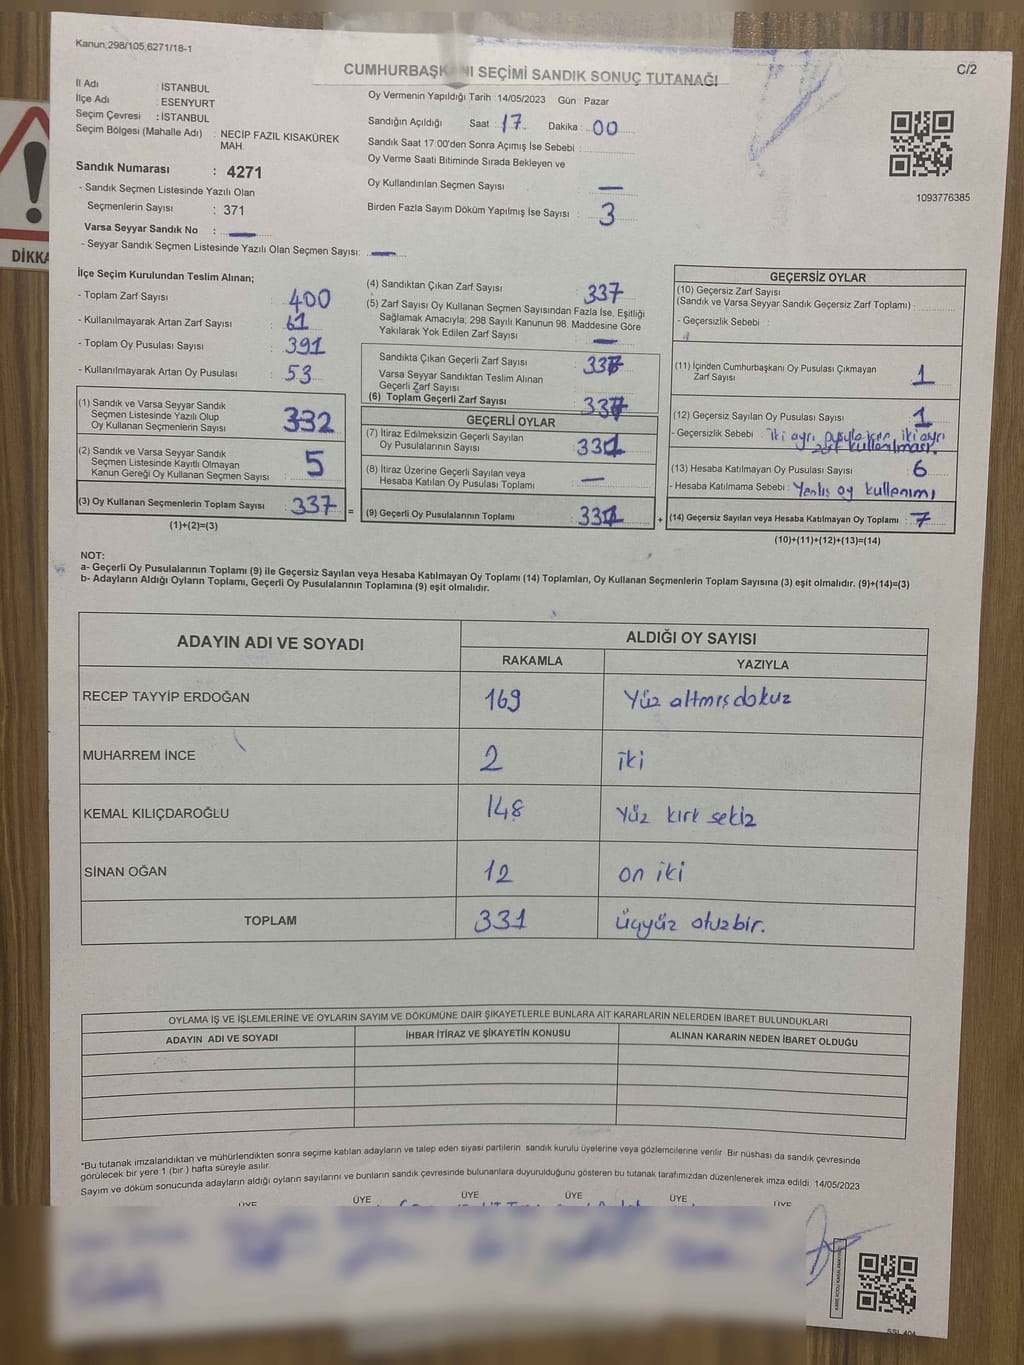 Kanun;298/105,6271/18-1
C/2
CUMHURBAŞKANI SEÇİMİ SANDIK SONUÇ TUTANAĞI
İl Adı : İSTANBUL
İlçe Adı : ESENYURT
Seçim Çevresi : İSTANBUL
Seçim Bölgesi (Mahalle Adı) : NECİP FAZIL KISAKÜREK MAH.
Sandık Numarası : 4271
- Sandık Seçmen Listesinde Yazılı Olan
Seçmenlerin Sayısı : 371
Varsa Seyyar Sandık No : —
- Seyyar Sandık Seçmen Listesinde Yazılı Olan Seçmen Sayısı: —
Oy Vermenin Yapıldığı Tarih : 14/05/2023 Gün : Pazar
Sandığın Açıldığı Saat : 17 Dakika : 00
Sandık Saat 17:00'den Sonra Açımış İse Sebebi :
Oy Verme Saati Bitiminde Sırada Bekleyen ve
Oy Kullandırılan Seçmen Sayısı : —
Birden Fazla Sayım Döküm Yapılmış İse Sayısı : 3
1093776385
DİKKA
İlçe Seçim Kurulundan Teslim Alınan;
- Toplam Zarf Sayısı : 400
- Kullanılmayarak Artan Zarf Sayısı : 61
- Toplam Oy Pusulası Sayısı : 391
- Kullanılmayarak Artan Oy Pusulası : 53
(1) Sandık ve Varsa Seyyar Sandık
Seçmen Listesinde Yazılı Olup
Oy Kullanan Seçmenlerin Sayısı : 332
(2) Sandık ve Varsa Seyyar Sandık
Seçmen Listesinde Kayıtlı Olmayan
Kanun Gereği Oy Kullanan Seçmen Sayısı : 5
(3) Oy Kullanan Seçmenlerin Toplam Sayısı : 337 =
(1)+(2)=(3)
(4) Sandıktan Çıkan Zarf Sayısı : 337
(5) Zarf Sayısı Oy Kullanan Seçmen Sayısından Fazla İse, Eşitliği
Sağlamak Amacıyla; 298 Sayılı Kanunun 98. Maddesine Göre
Yakılarak Yok Edilen Zarf Sayısı : —
Sandıkta Çıkan Geçerli Zarf Sayısı : 337
Varsa Seyyar Sandıktan Teslim Alınan
Geçerli Zarf Sayısı :
(6) Toplam Geçerli Zarf Sayısı : 337
GEÇERLİ OYLAR
(7) İtiraz Edilmeksizin Geçerli Sayılan
Oy Pusulasının Sayısı : 331
(8) İtiraz Üzerine Geçerli Sayılan veya
Hesaba Katılan Oy Pusulası Toplamı : —
(9) Geçerli Oy Pusulalarının Toplamı : 331 +
GEÇERSİZ OYLAR
(10) Geçersiz Zarf Sayısı
(Sandık ve Varsa Seyyar Sandık Geçersiz Zarf Toplamı) :
- Geçersizlik Sebebi :
(11) İçinden Cumhurbaşkanı Oy Pusulası Çıkmayan
Zarf Sayısı : 1
(12) Geçersiz Sayılan Oy Pusulası Sayısı : 1
- Geçersizlik Sebebi : iki ayrı pusula için iki ayrı
zarf kullanılması.
(13) Hesaba Katılmayan Oy Pusulası Sayısı : 6
- Hesaba Katılmama Sebebi : Yanlış oy kullanımı
(14) Geçersiz Sayılan veya Hesaba Katılmayan Oy Toplamı : 7
(10)+(11)+(12)+(13)=(14)
NOT:
a- Geçerli Oy Pusulalarının Toplamı (9) ile Geçersiz Sayılan veya Hesaba Katılmayan Oy Toplamı (14) Toplamları, Oy Kullanan Seçmenlerin Toplam Sayısına (3) eşit olmalıdır. (9)+(14)=(3)
b- Adayların Aldığı Oyların Toplamı, Geçerli Oy Pusulalarının Toplamına (9) eşit olmalıdır.
ADAYIN ADI VE SOYADI
ALDIĞI OY SAYISI
RAKAMLA YAZIYLA
RECEP TAYYİP ERDOĞAN 169 Yüz altmış dokuz
MUHARREM İNCE 2 iki
KEMAL KILIÇDAROĞLU 148 Yüz kırk sekiz
SİNAN OĞAN 12 on iki
TOPLAM 331 üçyüz otuzbir.
OYLAMA İŞ VE İŞLEMLERİNE VE OYLARIN SAYIM VE DÖKÜMÜNE DAİR ŞİKAYETLERLE BUNLARA AİT KARARLARIN NELERDEN İBARET BULUNDUKLARI
ADAYIN ADI VE SOYADI İHBAR İTİRAZ VE ŞİKAYETİN KONUSU ALINAN KARARIN NEDEN İBARET OLDUĞU
*Bu tutanak imzalandıktan ve mühürlendikten sonra seçime katılan adayların ve talep eden siyasi partilerin sandık kurulu üyelerine veya gözlemcilerine verilir. Bir nüshası da sandık çevresinde
görülecek bir yere 1 (bir ) hafta süreyle asılır.
Sayım ve döküm sonucunda adayların aldığı oyların sayılarını ve bunların sandık çevresinde bulunanlara duyurulduğunu gösteren bu tutanak tarafımızdan düzenlenerek imza edildi. 14/05/2023
ÜYE ÜYE ÜYE ÜYE ÜYE ÜYE